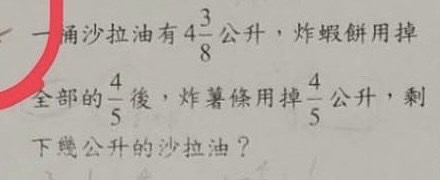 一桶沙拉油有4 3/8 公升，炸蝦餅用掉
全部的 4/5 後，炸薯條用掉 4/5 公升，剩
下幾公升的沙拉油？